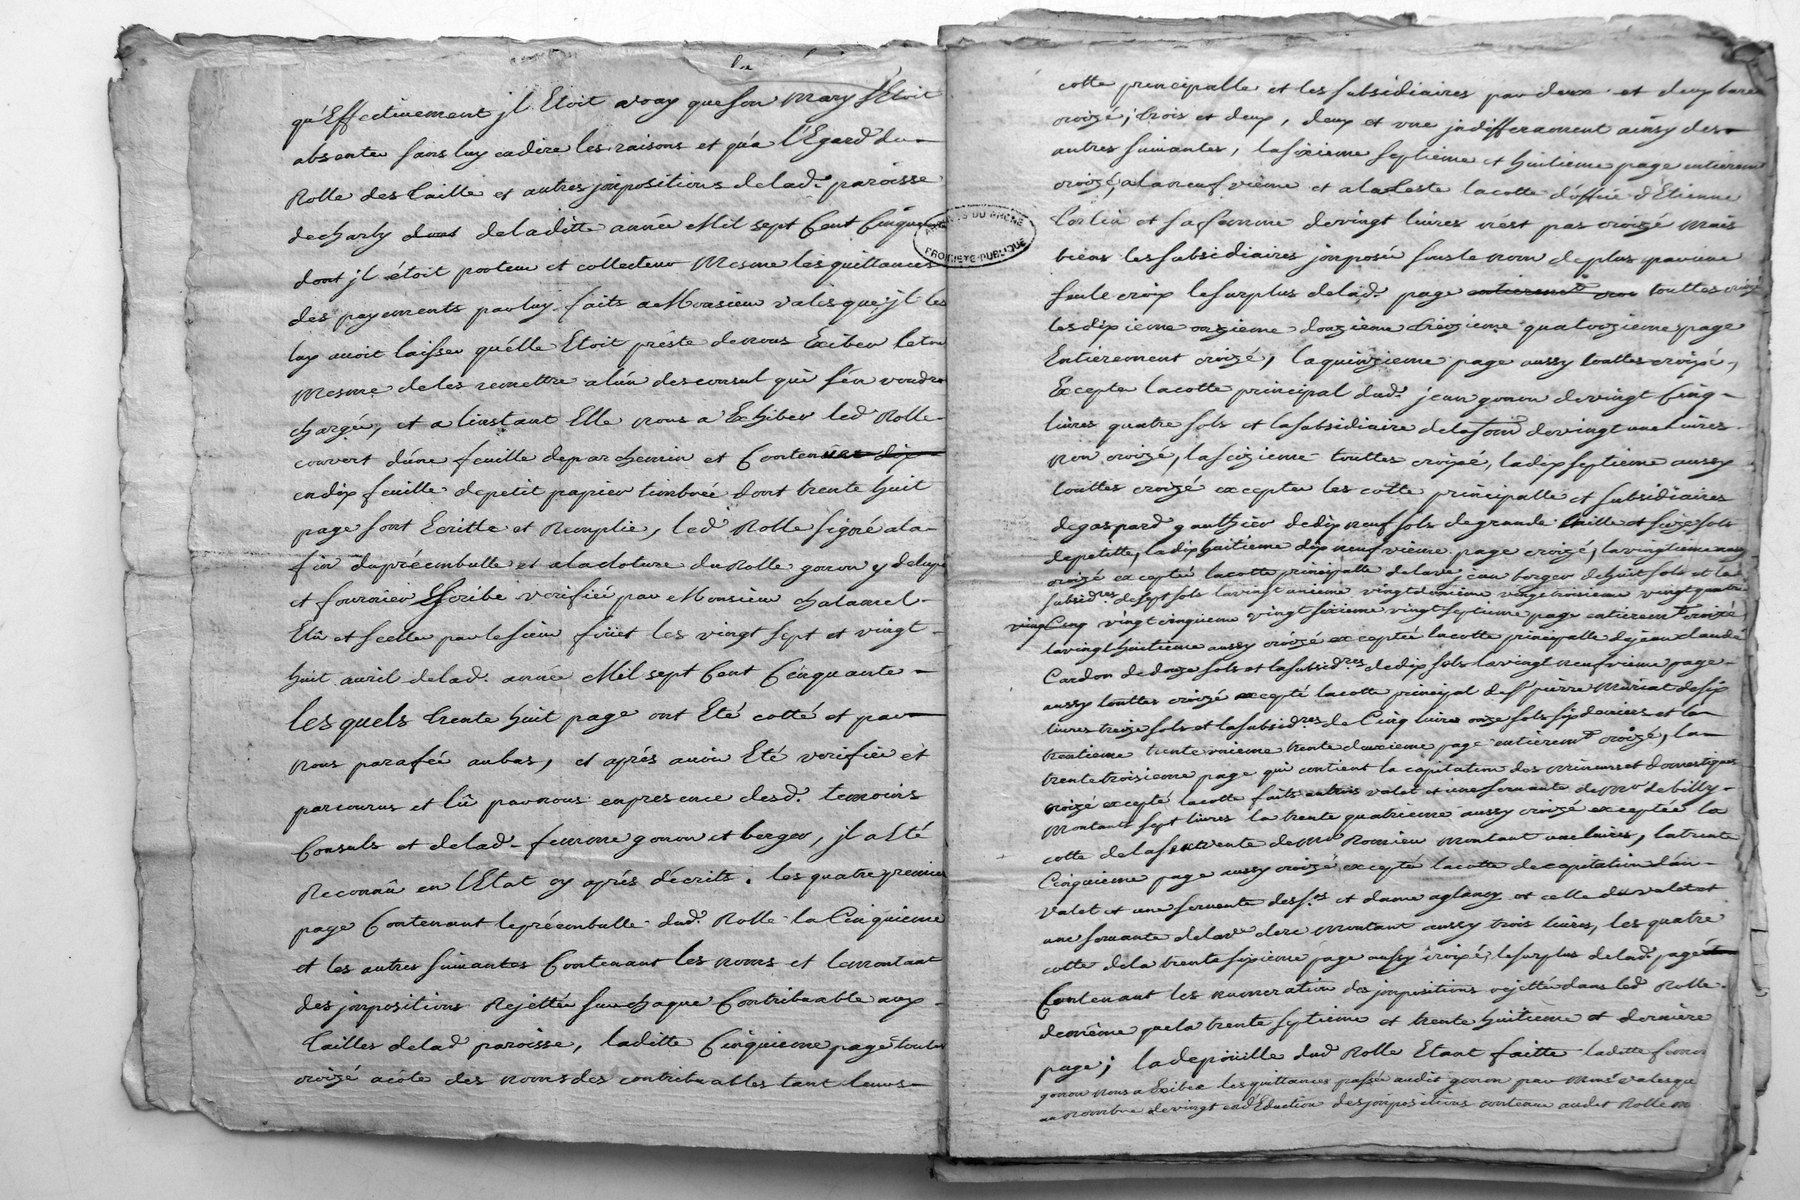 qu'Effectivement jl Etoit vray que son Mary s'Etoit
absenté sans luy en dire les raisons et qu'a l'Egard du
Rolle des Taille et autres jmpositions de lad.e paroisse
de charly de la ditte année Mil sept Cent Cinquante
dont jl étoit porteur et collecteur Mesme les quittances
des payements par luy faits a Monsieur valesque, jl les
luy avoit laisser qu'elle Etoit préste de nous Exiber le tou
Mesme de les remettre a l'un des consul qui s'en voudra
chargée, et a l'instant Elle nous a Exhiber led Rolle
couvert d'une feuille de parchemin et Contenues dix
en dix feuille de petit papier timbrée dont trente huit
page sont Ecritte et Remplie, led Rolle signé a la
fin du préembulle et a la cloture du Rolle gonon
et fournier Scribe verifiée par Monsieur chalamel
Elû et scellée par le sieur les vingt sept et vingt
huit avril de lad. année Mil sept Cent Cinquante
lesquels trente huit page ont Eté cotté et par
nous parafée au bas, et aprés avoir Eté verifiée et
parcourus et lû par nous en presence desd. temoins
Consuls et de lad. femme gonon et berger, jl a Eté
Reconnû en l'Etat cy aprés décrits. les quatre premier
page Contenant le préembulle dud. Rolle la Cinquieme
et les autres suivantes Contenant les noms et le montant
des jmpositions Rejettée sur chaque Contribuable aux
Tailles de lad paroisse, laditte Cinquieme page toutes
croizé a côte des noms des contribuables tant leurs
ARCHIVES DU RHÔNE
PROPRIÉTÉ PUBLIQUE
cotte principalle et les subsidiaires par deux et deux barre
croizé, trois et deux, deux et une jndifferament ainsy des
autres suivantes, la sixieme septieme et huitieme page entierem
croizé, a la neufvième et a la Teste la cotte d'office d'Etienne
et sa femme de vingt livres n'est pas croizé mais
biens les subsidiaires jmposée sous le nom de plus par une
seule croix le surplus de lad. page entierem.t croi touttes croizé
les dixieme onzieme douzieme treizieme quatorzieme page
Entiérement croizé, la quinzieme page aussy touttes croizé,
Exceptée la cotte principal dud. jean gonon de vingt Cinq
livres quatre sols et la subsidiaire de la som de vingt une livres
non croizé, la sizieme touttes croizé, la dix septieme aussy
touttes croizé exceptée les cotte principalle et subsidiaires
de gaspard gauthier de dix neuf sols de grande taille et seize sols
de petitte, la dix huitieme dix neufvieme page croizé, la vingtieme aussy
croizé exceptée la cotte principalle de la ve jean berger de huit sols et les
subsid.res de sept sols la vingt unieme vingt deuxieme vingt troisieme vingt quatrie
vingt Cinq vingt cinquieme vingt sixieme vingt septieme page entierem.t croizé
la vingt huitieme aussy croizé exceptée la cotte principalle de jean claude
Cardon de douze sols et la subsid.res de dix sols la vingt neufvieme page
aussy touttes croizé excepté la cotte principal de s.r pierre de six
livres treize sols et la subsid.res de Cinq livres onze sols six deniers et la
trentieme trente unieme trente deuxieme page entierem.t croizé, la
trente troisieme page qui contient la capitation des mineurs et domestiques
croizé excepté la cotte faits autres valet et une servante de Mr de billy
Montant sept livres la trente quatrieme aussy croizé exceptée la
cotte de la servente de Mr Romieu montant une livres, la trente
Cinquieme page aussy croizé excepté la cotte de capitation d'un
valet et une servente des s.rs et dame et celle du valet et
une servante de la ve montant aussy trois livres, les quatre
cotte de la trente sixieme page aussy croizé, le surplus de lad. page
Contenant les numeration des jmpositions rejettée dans led Rolle
de même que la trente septieme et trente huitieme et dernière
page; la depouille dud Rolle Etant faitte laditte femme
gonon nous a Exibée les quittances passée audit gonon par Mons.r valesque
au nombre de vingt en d'Eduction des jmpositions contenue audit Rolle